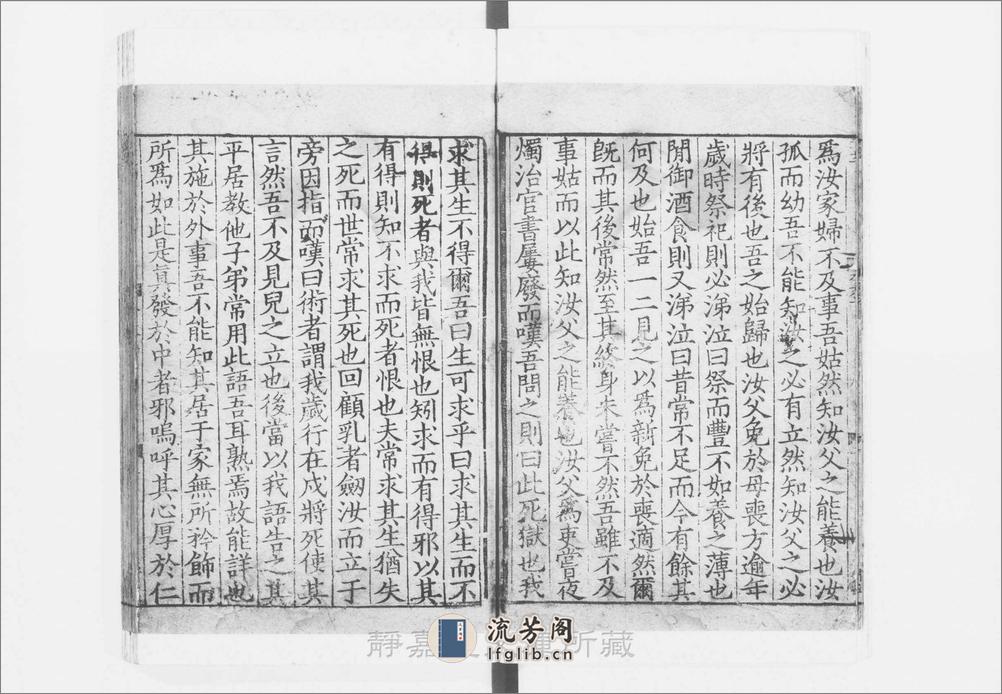 爲汝家婦不及事吾姑然知汝父之能養也汝
孤而幼吾不能知汝之必有立然知汝父之必
將有後也吾之始歸也汝父免於母喪方逾年
歲時祭祀則必涕泣曰祭而豐不如養之薄也
閒御酒食則又涕泣曰昔常不足而今有餘其
何及也始吾一二見之以爲新免於喪適然爾
旣而其後常然至其終身未嘗不然吾雖不及
事姑而以此知汝父之能養也汝父爲吏嘗夜
燭治官書屢廢而嘆吾問之則曰此死獄也我
求其生不得爾吾曰生可求乎曰求其生而不
得則死者與我皆無恨也矧求而有得邪以其
有得則知不求而死者恨也夫常求其生猶失
之死而世常求其死也回顧乳者劒汝而立于
旁因指而嘆曰術者謂我歲行在戌將死使其
言然吾不及見兒之立也後當以我語告之其
平居教他子弟常用此語吾耳熟焉故能詳也
其施於外事吾不能知其居于家無所矜飾而
所爲如此是眞發於中者邪嗚呼其心厚於仁
靜嘉 所藏
流芳阁
lfglib.cn